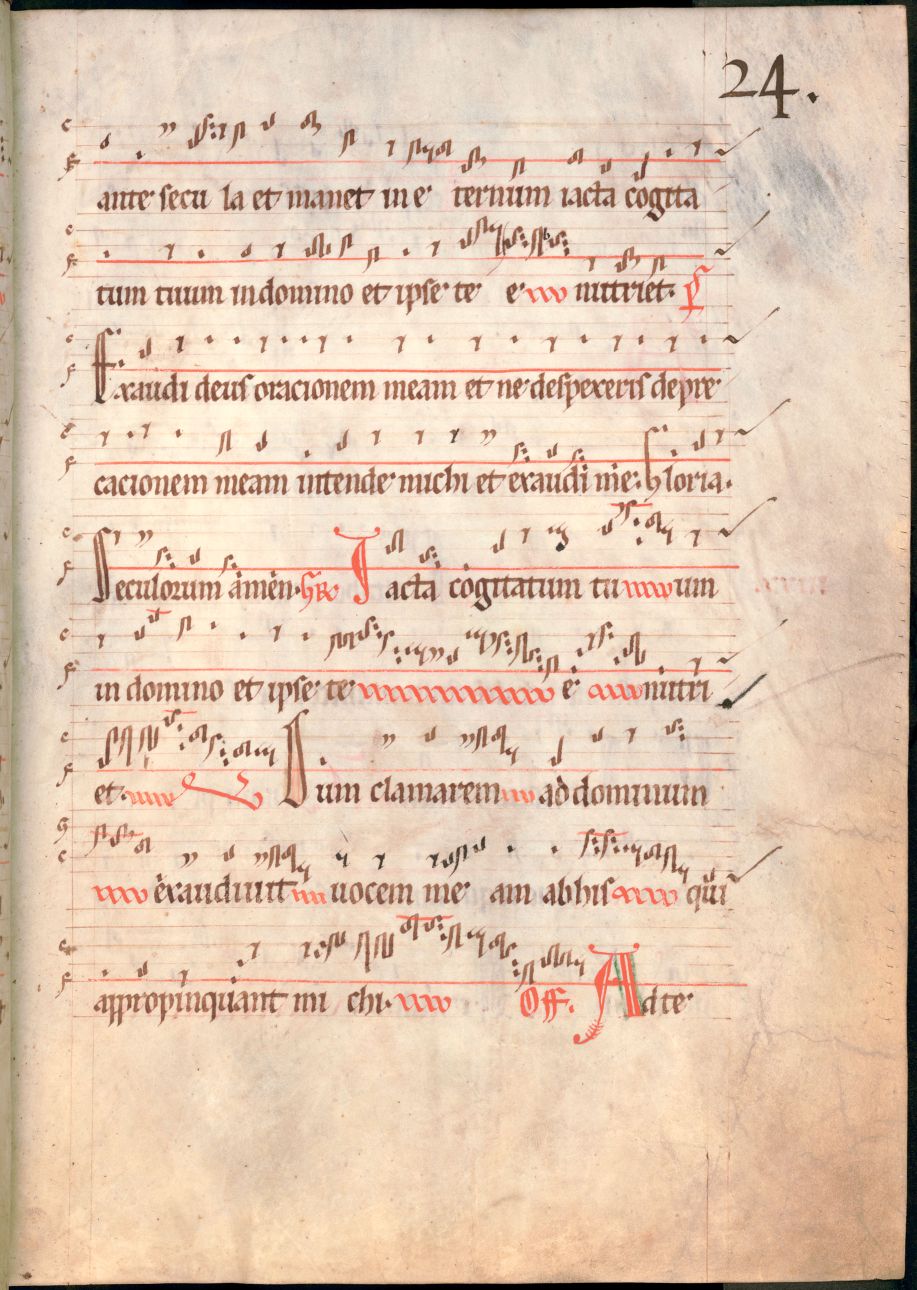 24.
ante secu la et manet in e ternum iacta cogita
tum tuum in domino et ipse te e nutriet. P̅s
Exaudi deus oracionem meam et ne despexeris depre
cacionem meam intende michi et exaudi me. Gloria.
Seculorum amen. Gr Iacta cogitatum tu um
in domino et ipse te e nutri
et. V Dum clamarem ad dominum
exaudiuit uocem me am ab his qui
appropinquant mi chi. Off. Ad te